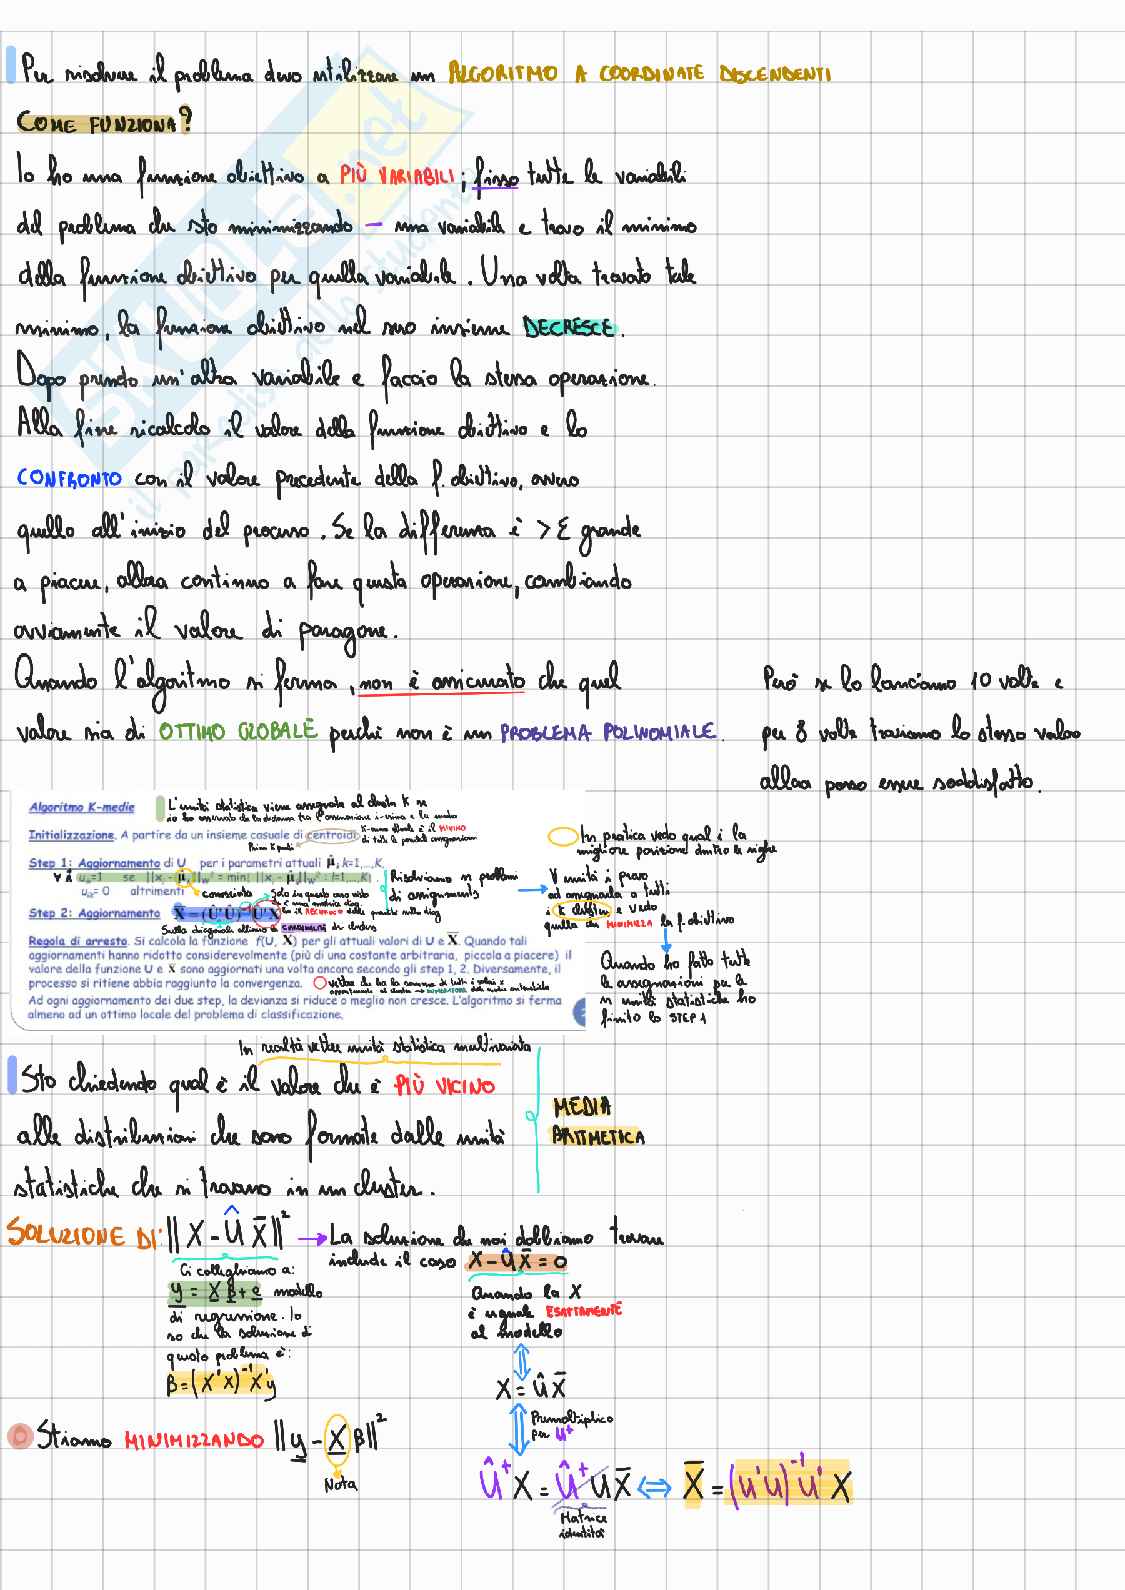 Per risolvere il problema devo utilizzare un ALGORITMO A COORDINATE DISCENDENTI
COME FUNZIONA?
Io ho una funzione obiettivo a PIÙ VARIABILI; fisso tutte le variabili
del problema che sto minimizzando - una variabile e trovo il minimo
della funzione obiettivo per quella variabile. Una volta trovato tale
minimo, la funzione obiettivo nel suo insieme DECRESCE.
Dopo prendo un'altra variabile e faccio la stessa operazione.
Alla fine ricalcolo il valore della funzione obiettivo e lo
CONFRONTO con il valore precedente della f. obiettivo, ovvero
quello all'inizio del processo. Se la differenza è > ε grande
a piacere, allora continuo a fare questa operazione, cambiando
ovviamente il valore di paragone.
Quando l'algoritmo si ferma, non è assicurato che quel
valore sia di OTTIMO GLOBALE perché non è un PROBLEMA POLINOMIALE.
Però se lo lanciamo 10 volte e
per 8 volte troviamo lo stesso valore
allora posso essere soddisfatto.
Algoritmo K-medie
L'unità statistica viene assegnata al cluster K se
Inizializzazione. A partire da un insieme casuale di centroidi
Primi K punti
Step 1: Aggiornamento di U per i parametri attuali μ̂, k=1,...,K.
uᵢₖ= 0 altrimenti
conosciuto
Step 2: Aggiornamento X̄ = (Û'Û)⁻¹U'X
Sulla diagonale abbiamo la CARDINALITÀ dei clusters
Regola di arresto. Si calcola la funzione f(U, X̄) per gli attuali valori di U e X̄. Quando tali
aggiornamenti hanno ridotto considerevolmente (più di una costante arbitraria, piccola a piacere) il
valore della funzione U e X̄ sono aggiornati una volta ancora secondo gli step 1, 2. Diversamente, il
processo si ritiene abbia raggiunto la convergenza.
Ad ogni aggiornamento dei due step, la devianza si riduce o meglio non cresce. L'algoritmo si ferma
almeno ad un ottimo locale del problema di classificazione.
Risolviamo n problemi
di assegnamento
In pratica vedo qual è la
migliore posizione dentro le righe
∀ unità i provo
ad assegnarla a tutti
i K clusters e vedo
quella che MINIMIZZA la f. obiettivo
Quando ho fatto tutte
le assegnazioni per le
n unità statistiche ho
finito lo STEP 1
In realtà vettore unità statistica multivariata
Sto chiedendo qual è il valore che è PIÙ VICINO
alle distribuzioni che sono formate dalle unità
statistiche che si trovano in un cluster.
MEDIA
ARITMETICA
SOLUZIONE DI: ||X - Û X̄||² → La soluzione che noi dobbiamo trovare
include il caso X - ÛX̄ = 0
Ci colleghiamo a:
y = X β + e modello
di regressione. Io
so che la soluzione di
questo problema è:
β = (X'X)⁻¹X'y
Quando la X
è uguale ESATTAMENTE
al modello
X = ÛX̄
Premoltiplico
per U⁺
Stiamo MINIMIZZANDO ||y - X β||²
Nota
Û⁺X = Û⁺UX̄ ⟺ X̄ = (U'U)⁻¹U'X
Matrice
identità